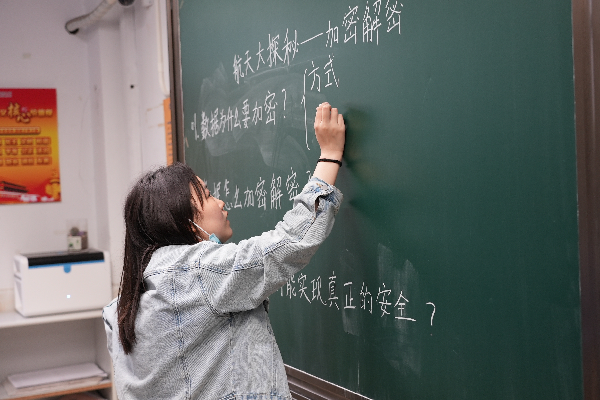 航天大探秘—加密解密
1.数据为什么要加密？{方式
据怎么加密解密？
能实现真正的安全？
核心